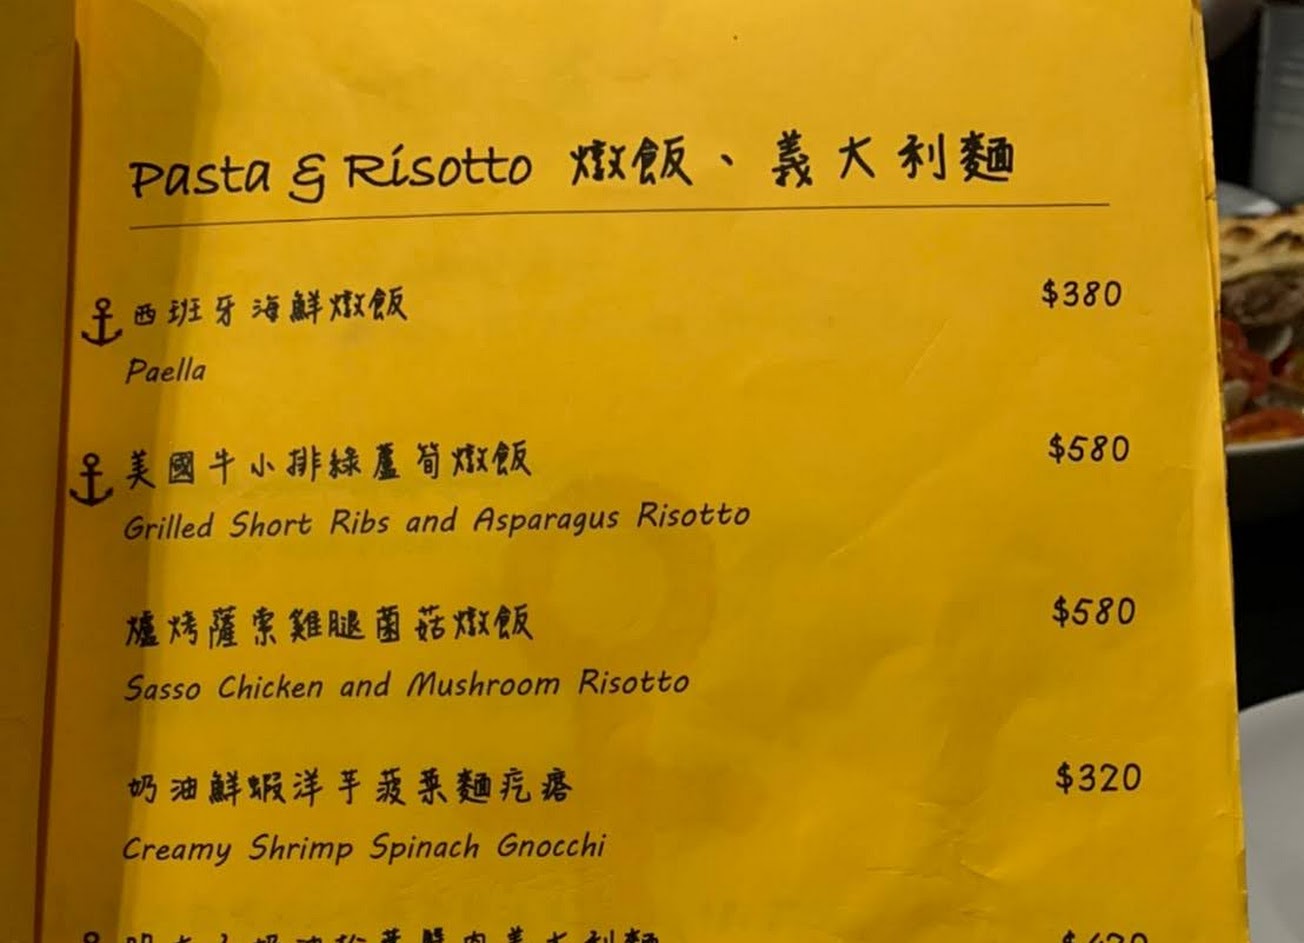 Pasta & Risotto 燉飯、義大利麵
西班牙海鮮燉飯 $380
Paella
美國牛小排綠蘆筍燉飯 $580
Grilled Short Ribs and Asparagus Risotto
爐烤薩索雞腿菌菇燉飯 $580
Sasso Chicken and Mushroom Risotto
奶油鮮蝦洋芋菠菜麵疙瘩 $320
Creamy Shrimp Spinach Gnocchi